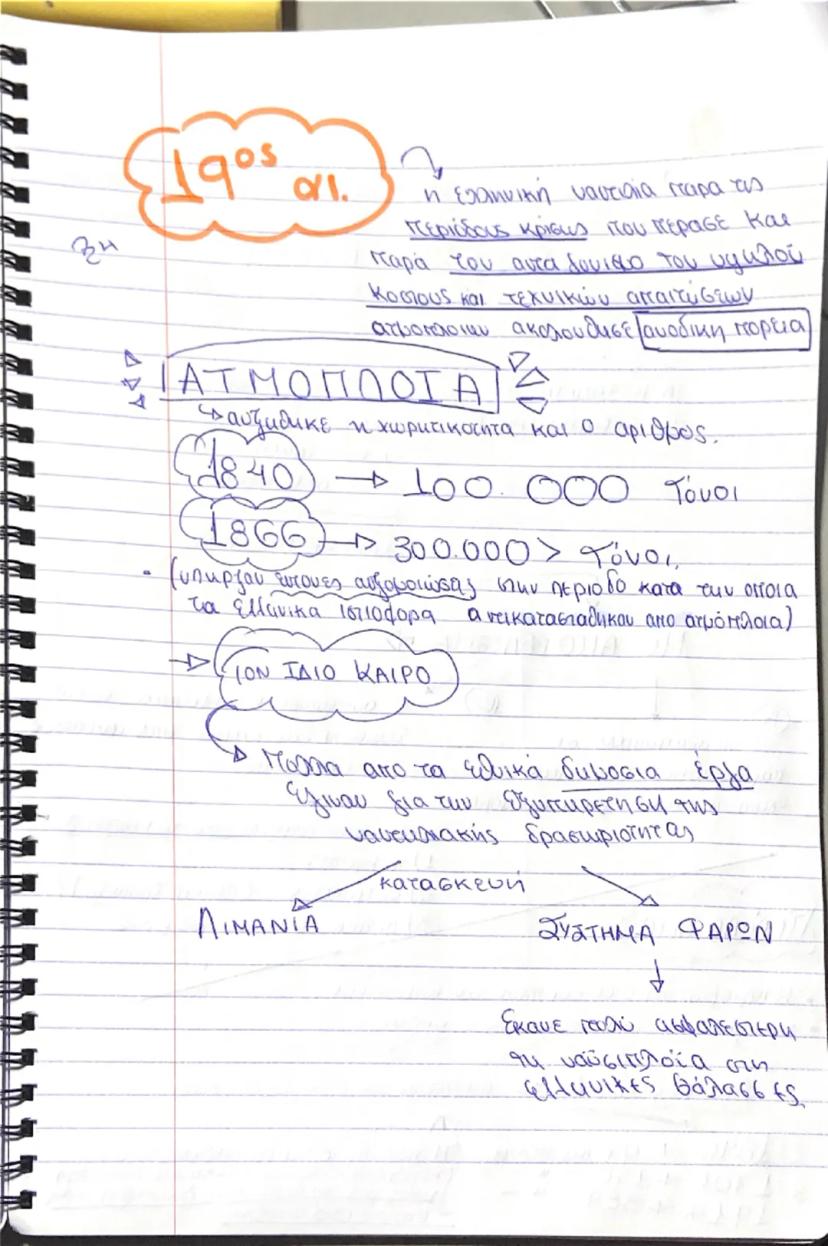 19ος αι.
η ελληνική ναυτιλία παρα τις
περιόδους κρίσης που πέρασε και
παρά τον ανταγωνισμο του υψηλού
κοστους και τεχνικών απαιτήσεων
ατμοπλοιων ακολουθησε ανοδικη πορεια
ΑΤΜΟΠΛΟΙΑ
αυξηθηκε η χωρητικοτητα και ο αριθμος.
1840 → 100.000 Τόνοι
1866 → 300.000 > Τόνοι.
- (υπηρξαν έντονες αυξομοιώσεις στην περιοδο κατα την οποια
τα ελληνικα ιστιοφορα αντικατασταθηκαν απο ατμόπλοια)
→ ΤΟΝ ΙΔΙΟ ΚΑΙΡΟ
Πολλα απο τα εθνικά δημοσια έργα
έγιναν για την εξυπηρετηση της
ναυτιλιακής δραστηριοτητας
κατασκευή
ΛΙΜΑΝΙΑ ΣΥΣΤΗΜΑ ΦΑΡΩΝ
Εκανε πολύ ασφαλεστερη
τη ναυσιπλοΐα στη
ελληνικες θάλασσες.